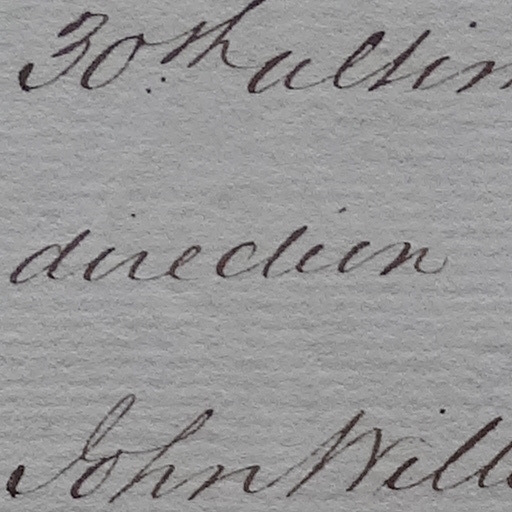 30.th ultim
direction
John Will